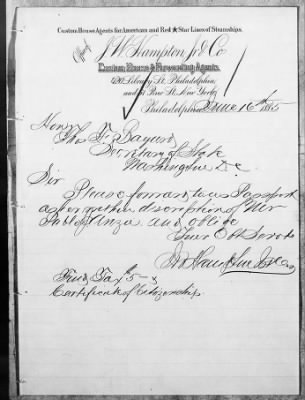 Custom House Agents for American and Red ★ Star Lines of Steamships.
J. W. Hampton Jr. & Co
Custom House & Forwarding Agents.
120 Library St. Philadelphia,
New York
Philadelphia, June 16th 1885
Honr
Thos F. Bayard
Secretary of State
Washington D.C.
Sir
Please forward to us Passport
as per within discription of Mr
and oblige
Your Obt Servts
J W Hampton Jr & Co
Find Tax $5
Certificate of Citizenship